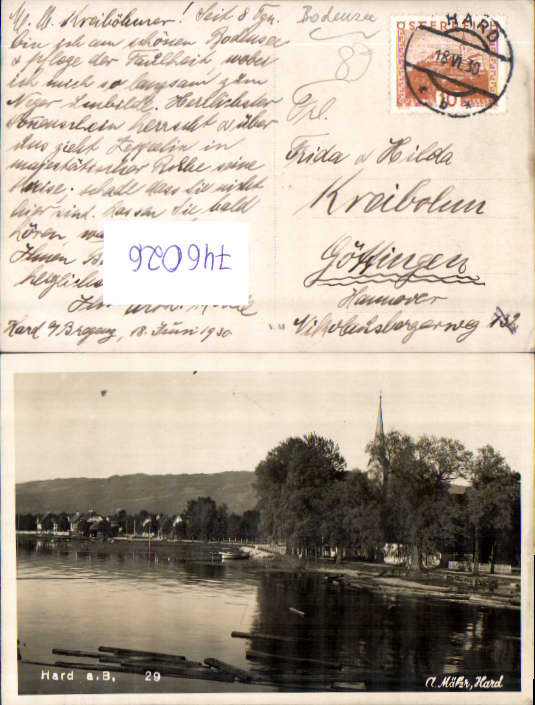 Kreibohmer! Seit 8 Tgn.
bin ich am schönen Bodensee
& pflege der Faulheit, wobei
ich mich so langsam zum
Neger Herrlichster
Sonnenschein herrscht & über
uns zieht Zeppelin in
majestätischer Ruhe seine
Kreise. schade dass Sie nicht
hier sind. Lassen Sie bald
hören,
Ihnen
herzliche
Ihr
Hard b/Bregenz, 18. Juni 1930
Bodensee
87
ÖSTERREICH
HARD
18.VI.30
b
10
Frl.
Frida & Hilda
Kreibohm
Göttingen
Hannover
Nikolausbergerweg
746026
Hard a.B. 29
Hard